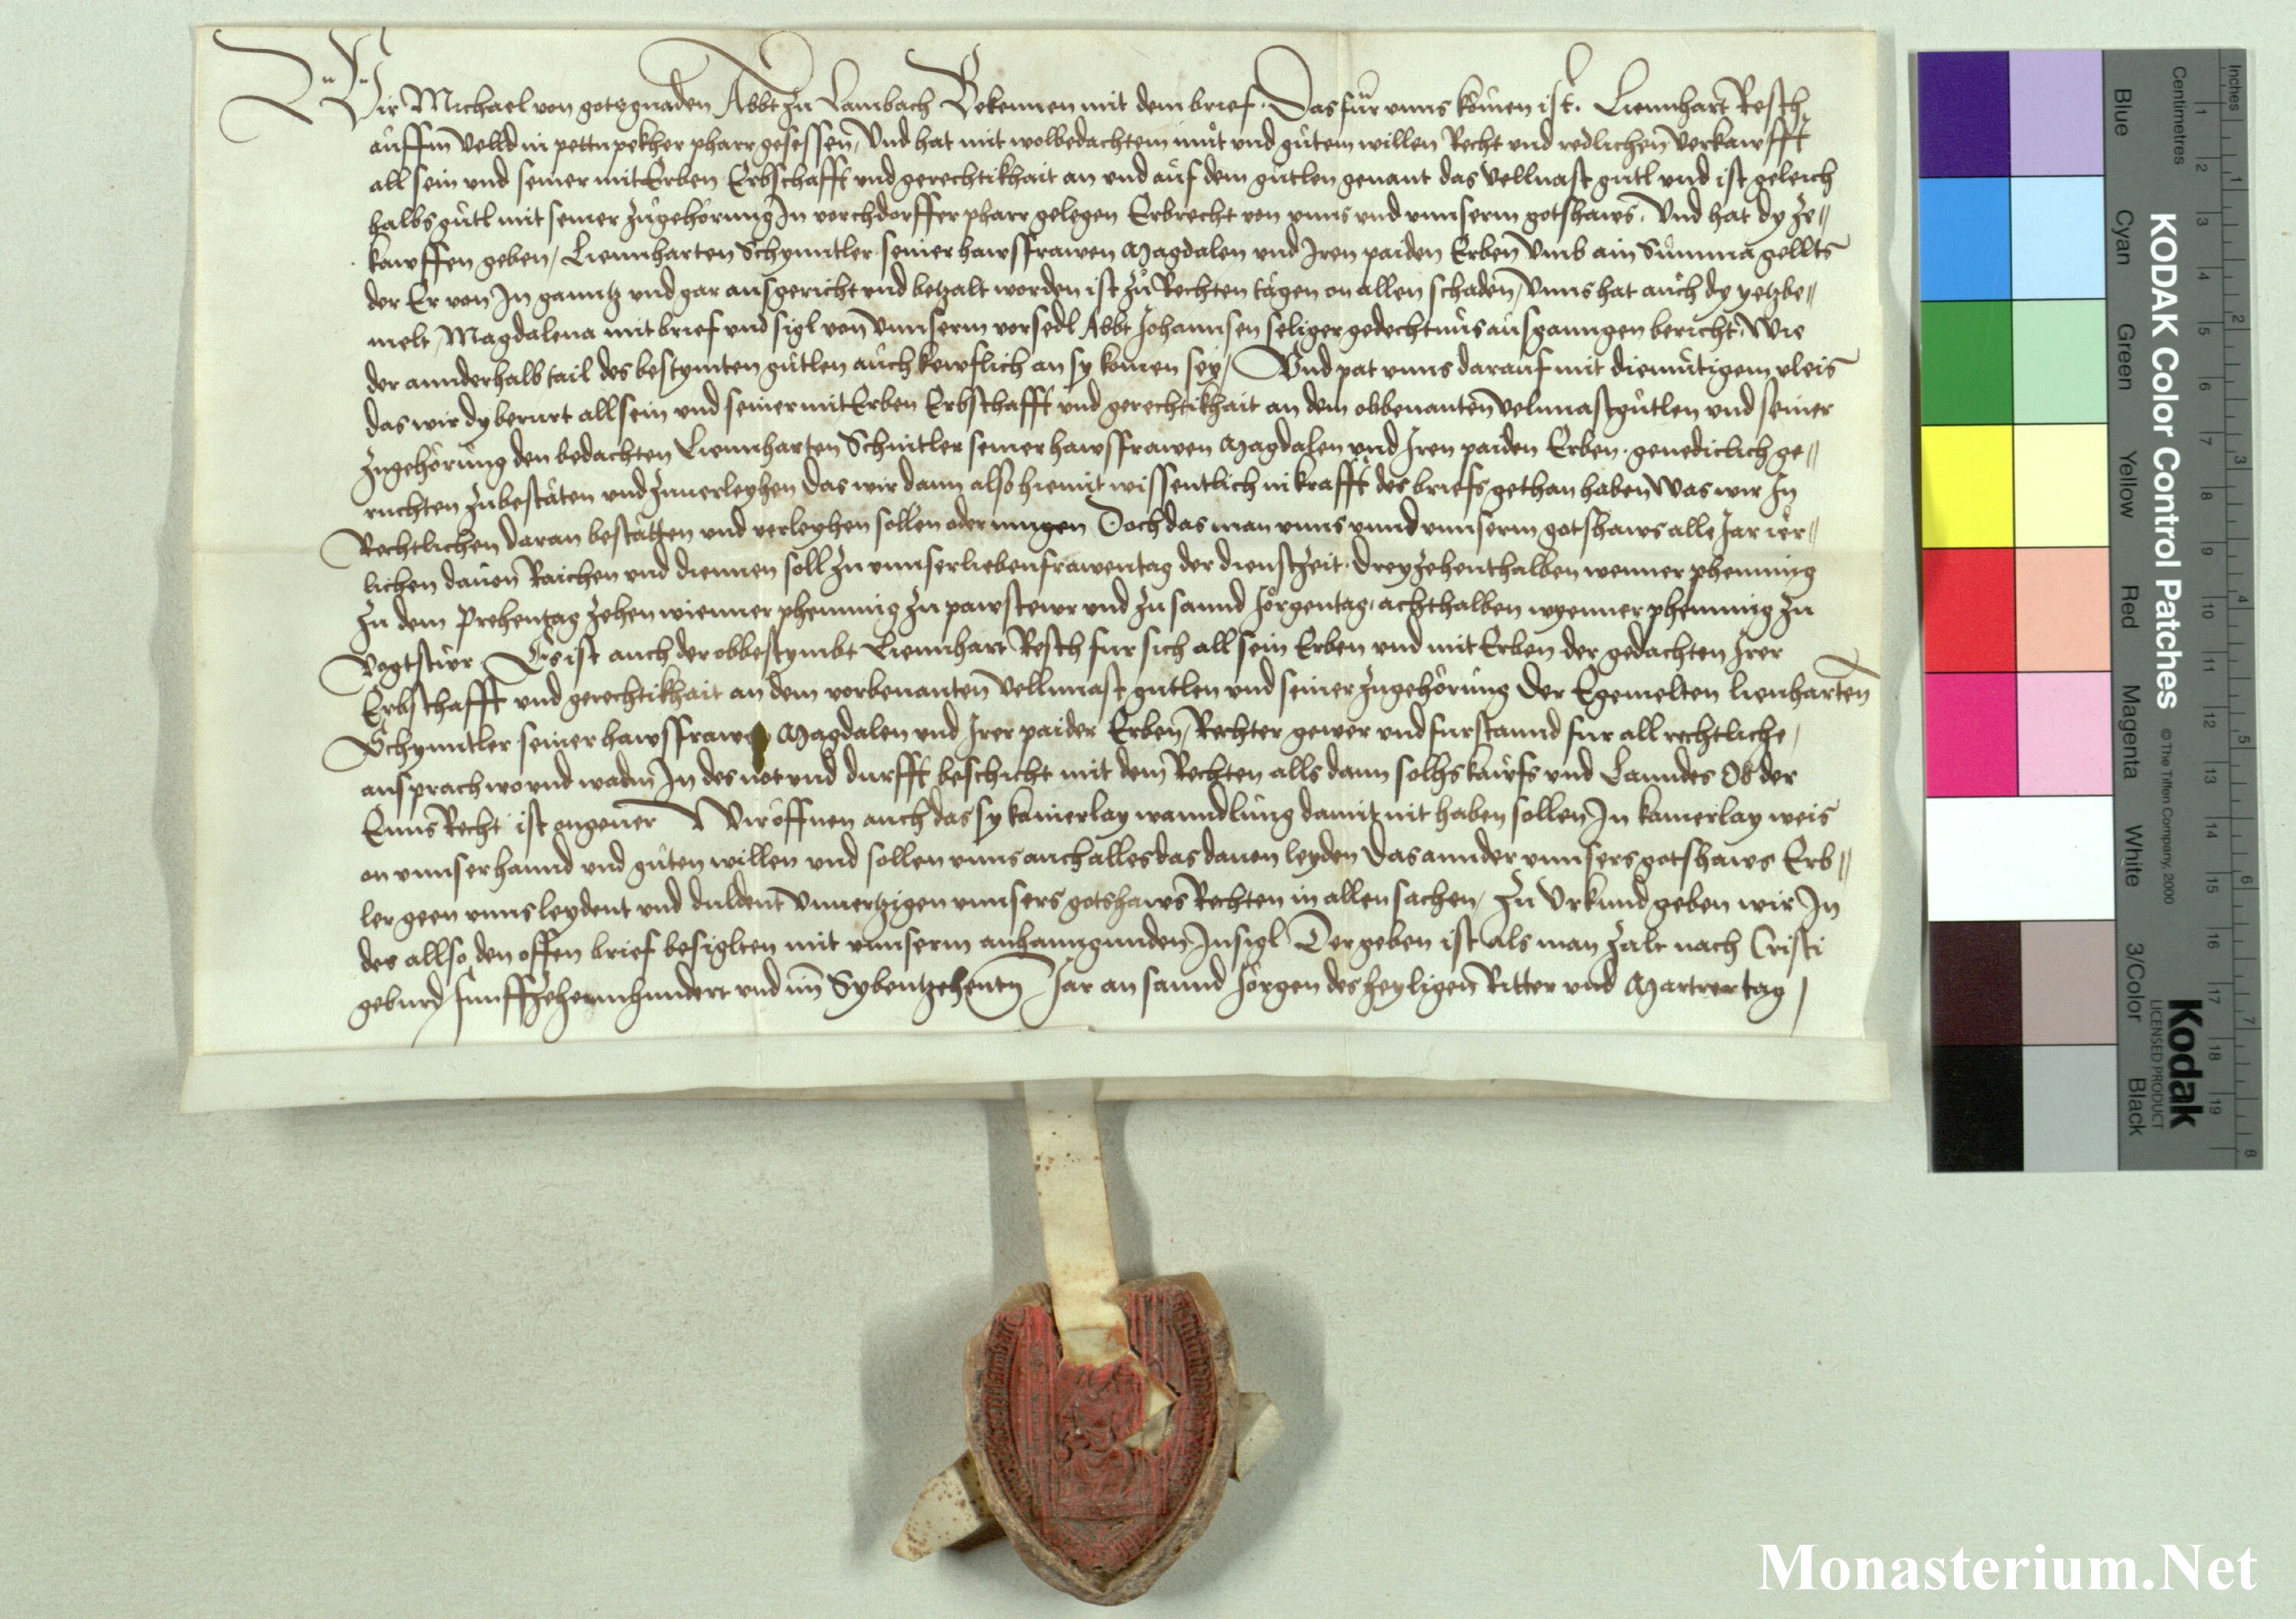 Wir Michael von gotzgnaden Abbt zu Lambach Bekennen mit dem brief. Das für vnns kömen ist. Liennhart Resch
auffm Velld in pettnpekher pharr gesessen, Vnd hat mit wolbedachtem müt vnd gütem willen Recht vnd redlichen verkawfft
all sein vnd seiner mitErben Erbschafft vnd gerechtikhait an vnd auf dem gütlen genant das Vellnast gütl vnd ist geleich
halbs gütl mit seiner zugehörung In vorchdorffer pharr gelegen Erbrecht von vnns vnd vnnserm gotshaws. Vnd hat dy ze//
kawffen geben, Liennharten Schynntler seiner hawsffrawen Magdalen vnd Iren paiden Erben Vmb ain Summa gellts
der Er von In ganntz vnd gar ausgericht vnd betzalt worden ist zu Rechten tägen on allen schaden, Vnns hat auch dy yetzbe//
melt, Magdalena mit brief vnd sigl von vnnserm vorsedl Abbt Johannsen seliger gedechtnüs ausganngen bericht, Wie
der annderhalb tail des bestymten gütlen auch kewflich an sy komen sey, Vnd pat vnns darauf mit diemütigem vleis
das wir dy berurt all sein vnd seiner mitErben Erbschafft vnd gerechtikhait an dem obbenanten Velnnastgütlen vnd seiner
zugehörung den bedachten Liennharten Schintler seiner hawsffrawen Magdalen vnd Iren paiden Erben genediclich ge//
ruchten zubestäten vnd zuuerleyhen Das wir dann also hiemit wissentlich in krafft des briefs gethan haben Was wir In
Rechtlichen daran bestätten vnd verleyhen sollen oder mugen Doch das man vnns vnnd vnnserm gotshaws alle Jar ier//
lichen dauon Raichen vnd diennen soll zu vnnserliebenfrawentag der dienstzeit. Dreyzehenthalben wenner phenning
zu dem Prehentag zehen wienner phenning zu pawstewr vnd zu sannd Jörgentag, achthalben wyenner phenning zu
Vogtstiwr. Es ist auch der obbestymbt Liennhart Resch fur sich all sein Erben vnd mitErben der gedachten Irer
Erbschafft vnd gerechtikhait an dem vorbenanten Vellnnast gutlen vnd seiner zugehörung Der Egemelten lienharten
Schynntler seiner hawsffrawen Magdalen vnd Irer paider Erben, Rechter gewer vnd furstannd fur all rechtliche,
ansprach wo vnd wann In des not vnd durfft beschicht mit dem Rechten alls dann solhs kaüfs vnd Lanndes Ob der
Enns Recht ist ongeuer Wir öffnen auch das sy kainerlay wanndlüng damit nit haben sollen In kainerlay weis
on vnnser hannd vnd güten willen vnd sollen vnns auch alles das dauon leyden Das annder vnnsers gotshaws Erb//
ler geen vnns leydent vnd duldent Vnuertzigen vnnsers gotshaws Rechten in allen sachen, Zu Vrkund geben wir In
des allso den offen brief besiglten mit vnnserm anhanngunden Insigl Der geben ist Als man zalt nach Cristi
geburd funffzehennhundert vnd im Sybentzehenten Jar an sannd Jörgen des heyligen Ritter vnd Martrer tag,
KODAK Color Control Patches
© The Tiffen Company, 2000
Kodak
LICENSED PRODUCT
Inches
Centimetres
Blue
Cyan
Green
Yellow
Red
Magenta
White
3/Color
Black
Monasterium.Net